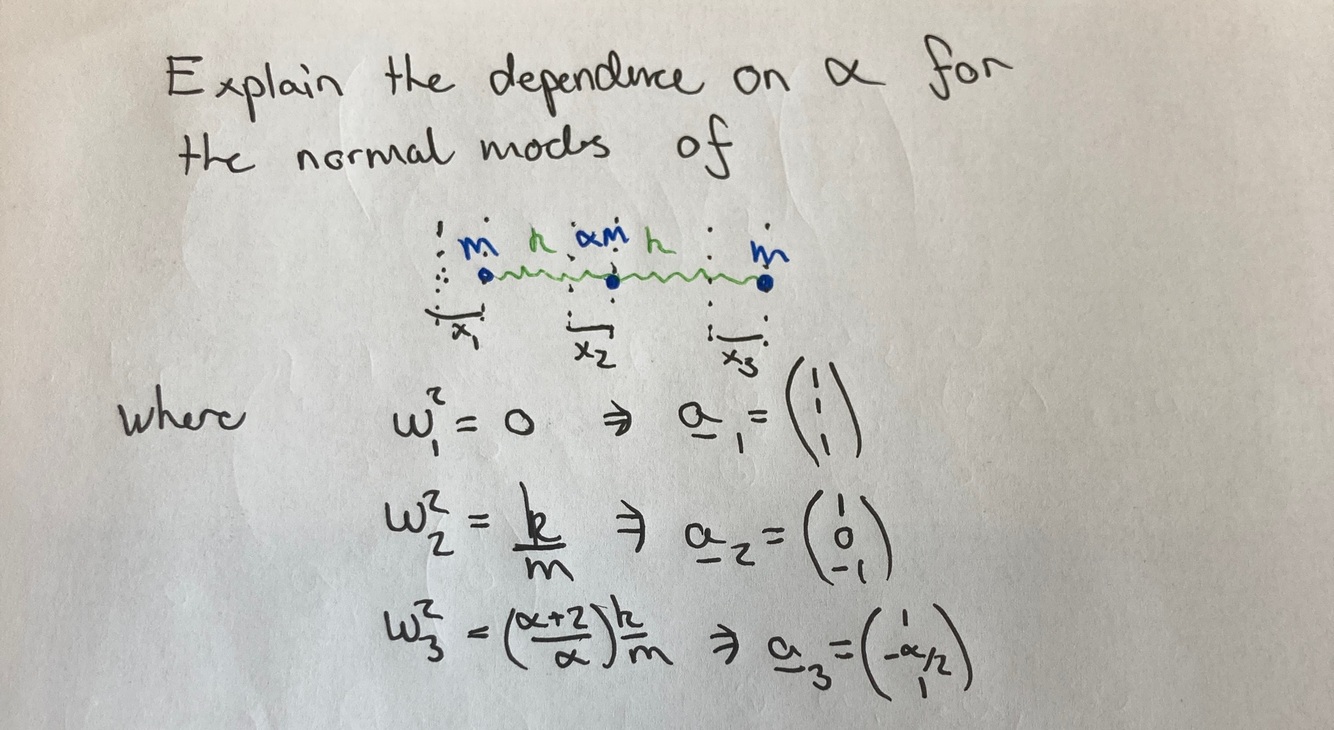 Explain the dependence on α for
the normal modes of
m k αm k m
x₁ x₂ x₃
where ω₁² = 0 ⇒ a̲₁ = (1 1 1)
ω₂² = k/m ⇒ a̲₂ = (1 0 -1)
ω₃² = (α+2/α) k/m ⇒ a̲₃ = (1 -α/2 1)